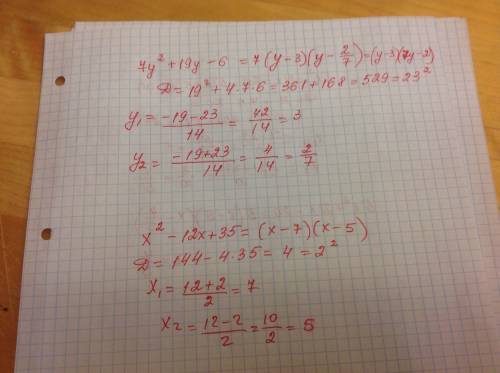 7y² + 19y - 6 = 7(y-3)(y-2/7) = (y-3)(7y-2)
D = 19² + 4·7·6 = 361 + 168 = 529 = 23²
y₁ = (-19-23)/14 = 42/14 = 3
y₂ = (-19+23)/14 = 4/14 = 2/7
x² - 12x + 35 = (x-7)(x-5)
D = 144 - 4·35 = 4 = 2²
x₁ = (12+2)/2 = 7
x₂ = (12-2)/2 = 10/2 = 5